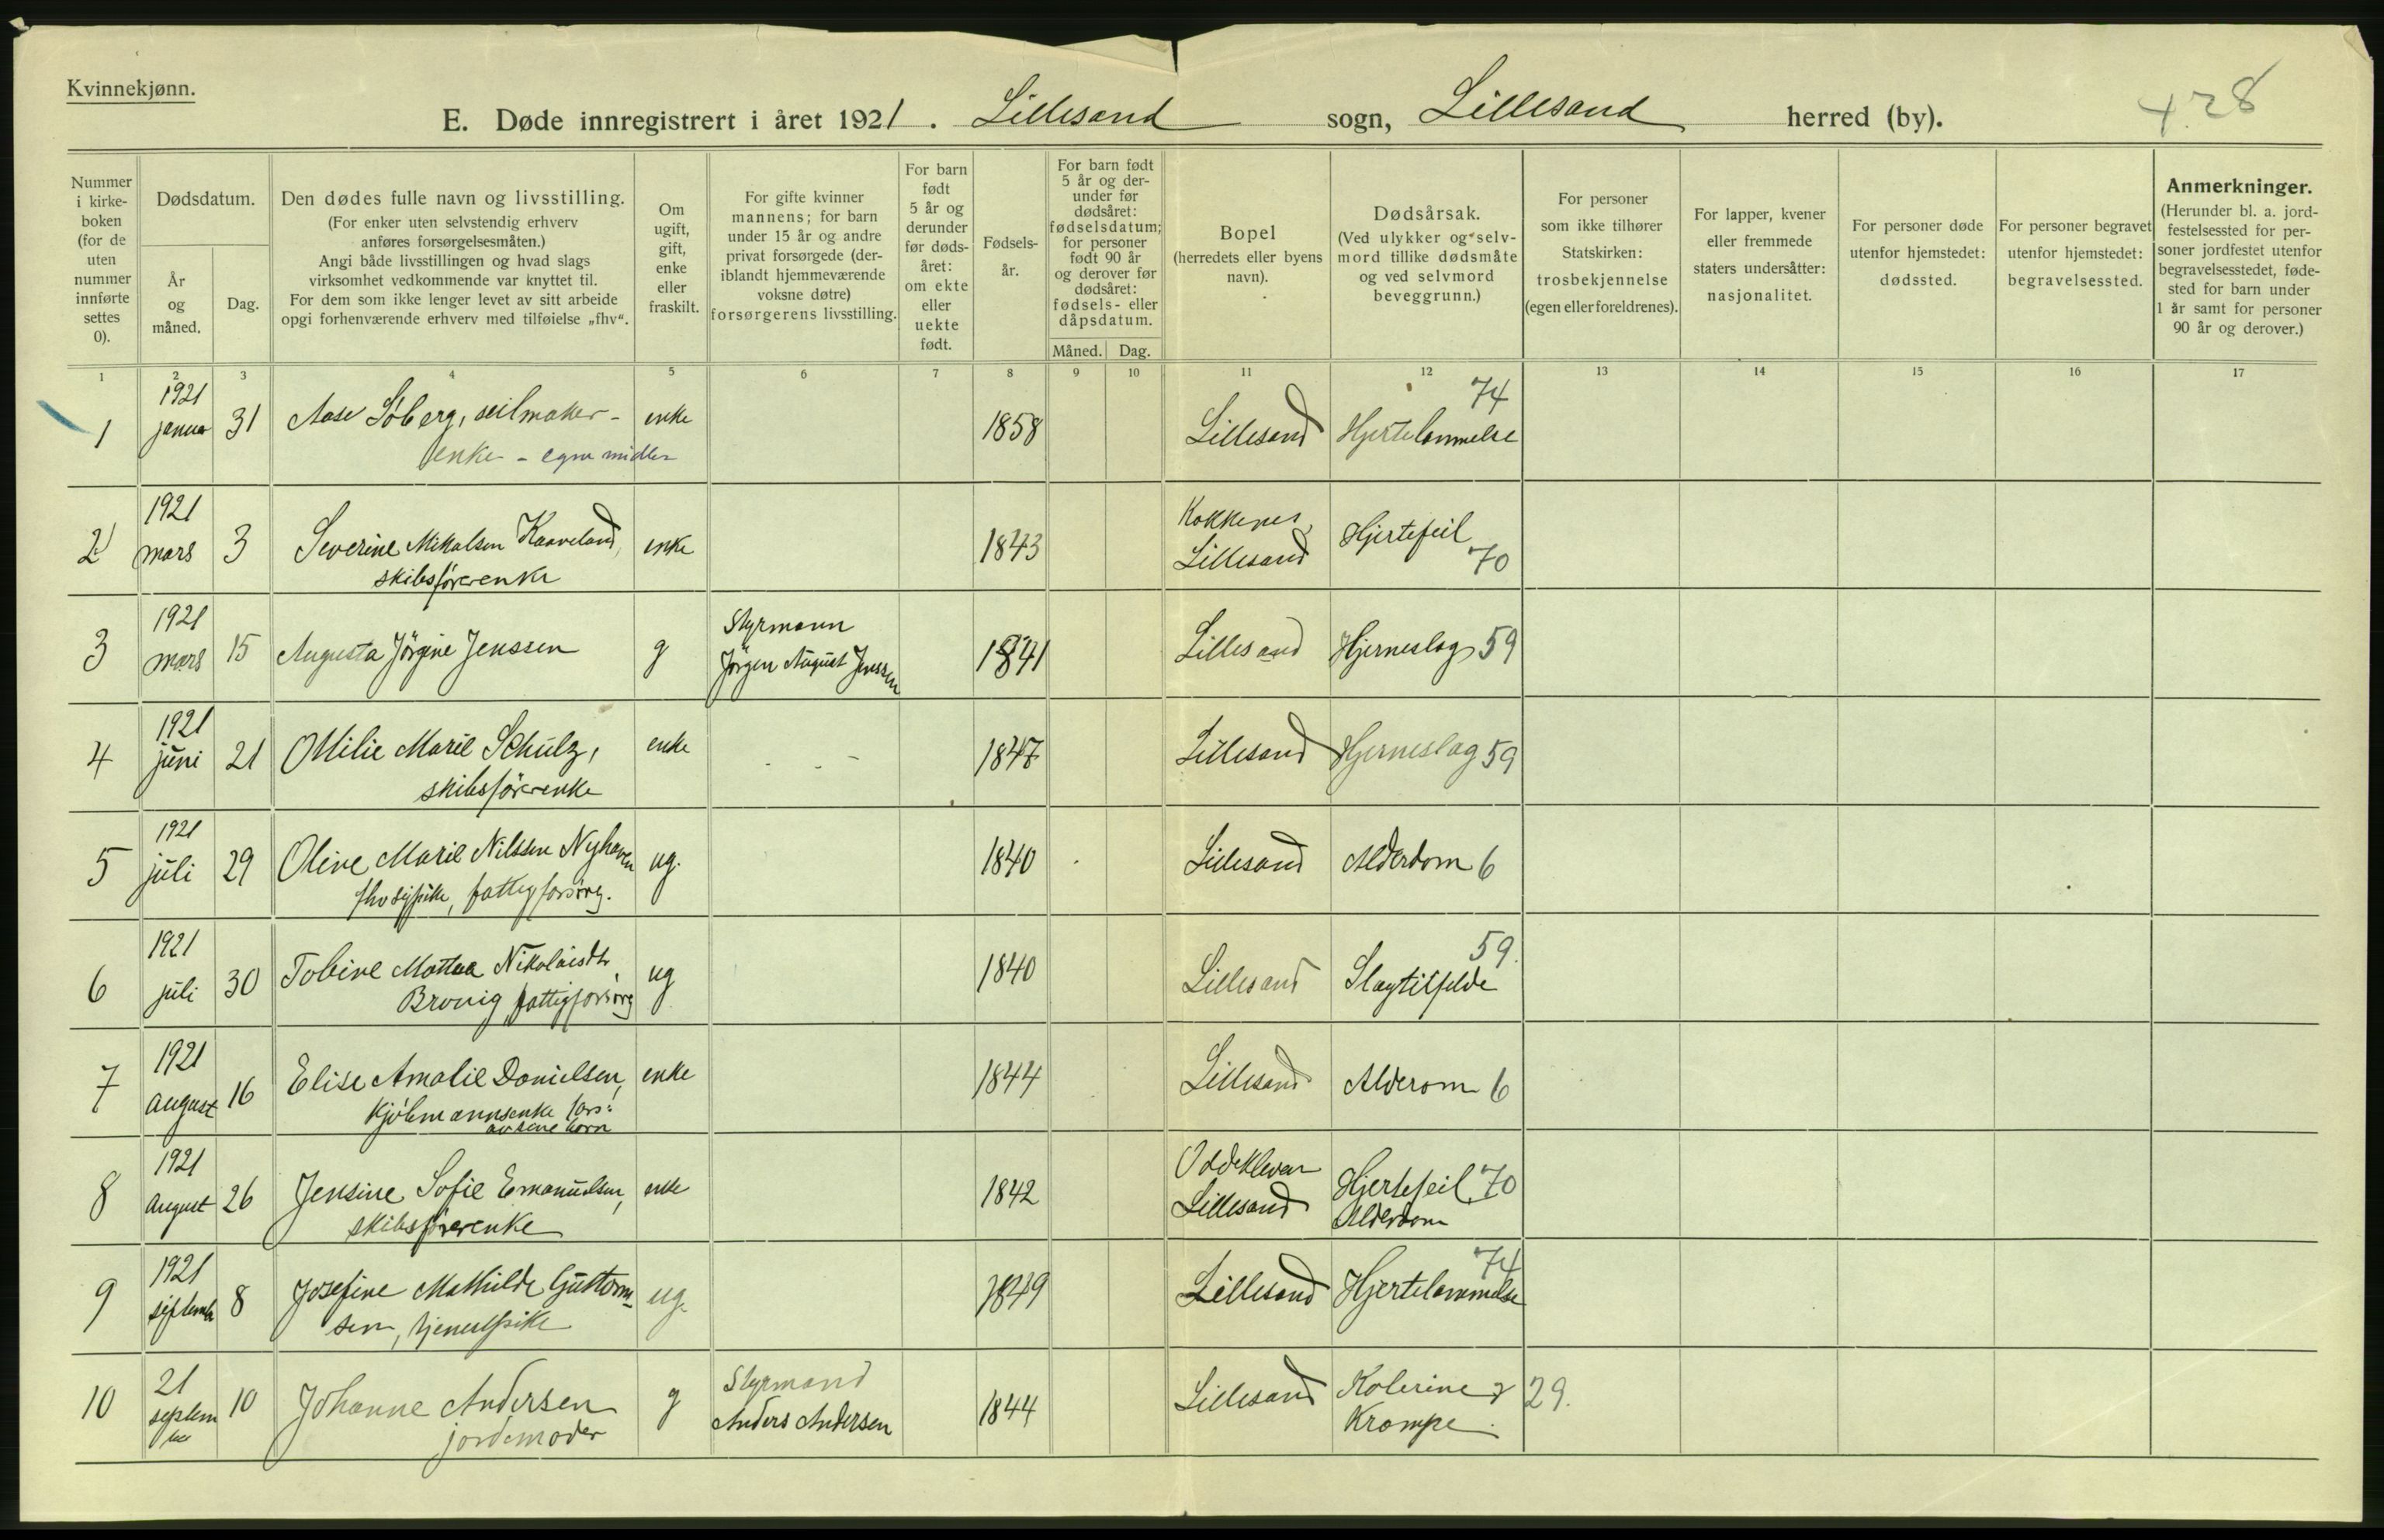 Kvinnekjønn.
E. Døde innregistrert i året 1921. Lillesand sogn, Lillesand herred (by).
428
Nummer i kirkeboken (for de uten nummer innførte settes 0).
Dødsdatum.
År og måned.
Dag.
Den dødes fulle navn og livsstilling.
(For enker uten selvstendig erhverv anføres forsørgelsesmåten.)
Angi både livsstillingen og hvad slags virksomhet vedkommende var knyttet til.
For dem som ikke lenger levet av sitt arbeide opgi forhenværende erhverv med tilføielse „fhv“.
Om ugift, gift, enke eller fraskilt.
For gifte kvinner mannens; for barn under 15 år og andre privat forsørgede (deriblandt hjemmeværende voksne døtre) forsørgerens livsstilling.
For barn født 5 år og derunder før dødsåret: om ekte eller uekte født.
Fødselsår.
For barn født 5 år og derunder før dødsåret: fødselsdatum; for personer født 90 år og derover før dødsåret: fødsels- eller dåpsdatum.
Måned. Dag.
Bopel
(herredets eller byens navn).
Dødsårsak.
(Ved ulykker og selvmord tillike dødsmåte og ved selvmord beveggrunn.)
For personer som ikke tilhører Statskirken: trosbekjennelse (egen eller foreldrenes).
For lapper, kvener eller fremmede staters undersåtter: nasjonalitet.
For personer døde utenfor hjemstedet: dødssted.
For personer begravet utenfor hjemstedet: begravelsessted.
Anmerkninger.
(Herunder bl. a. jordfestelsessted for personer jordfestet utenfor begravelsesstedet, fødested for barn under 1 år samt for personer 90 år og derover.)
1 2 3 4 5 6 7 8 9 10 11 12 13 14 15 16 17
1 1921 janua 31 Aase Söberg, seilmaker- enke 1858 Lillesand Hjertelammelse 74
enke - egne midler
2 1921 mars 3 Severine Mikalsen Kaaveland, enke 1843 Kokkenes, Lillesand Hjertefeil 70
skibsförerenke
3 1921 mars 15 Augusta Jörgine Jenssen g Styrmann Jörgen August Jenssen 1841 Lillesand Hjerneslag 59
4 1921 juni 21 Otilie Marie Schulz, enke - - - 1847 Lillesand Hjerneslag 59
skibsförerenke
5 1921 juli 29 Oline Marie Nilssen Nyhaven ug. 1840 Lillesand Alderdom 6
fhv sypike, fattigforsörg.
6 1921 juli 30 Tobine Mattea Nikolaisdtr ug 1840 Lillesand Slagtilfelde 59.
Brovig, fattigforsörg
7 1921 august 16 Elise Amalie Danielsen, enke 1844 Lillesand Alderom 6
Kjöbmannsenke fors:
av sine barn
8 1921 august 26 Jensine Sofie Emanuelsen, enke 1842 Oddekleven Lillesand Hjertefeil, 70 Alderdom
skibsförerenke
9 1921 septemb 8 Josefine Mathilde Guttorm- ug. 1849 Lillesand Hjertelammelse 74
sen, tjenestpike
10 21 septem ber 10 Johanne Andersen g Styrmand Anders Andersen 1844 Lillesand Kolerine & Krampe. 29.
jordemoder